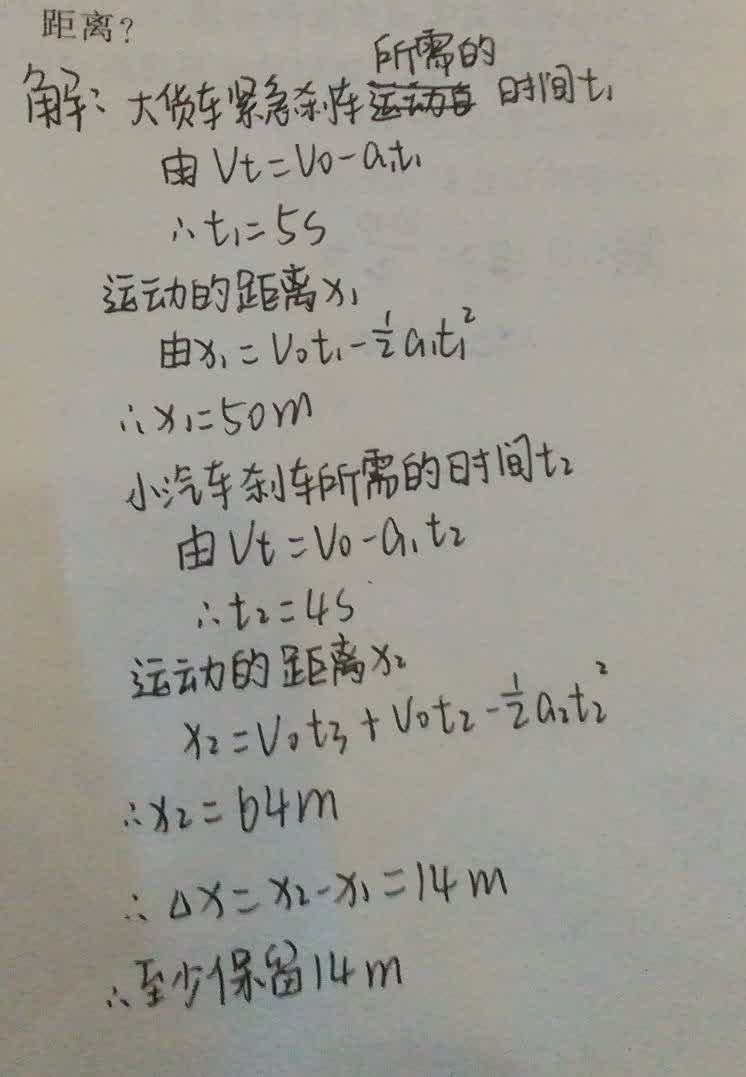 距离?
所需的
解: 大货车紧急刹车 时间t₁
由 Vt=V0-a₁t₁
∴t₁=5S
运动的距离x₁
由x₁=V0t₁-½a₁t₁²
∴x₁=50m
小汽车刹车所需的时间t₂
由 Vt=V0-a₁t₂
∴t₂=4S
运动的距离x₂
x₂=V0t₃+V0t₂-½a₂t₂²
∴x₂=64m
∴Δx=x₂-x₁=14m
∴至少保留14m